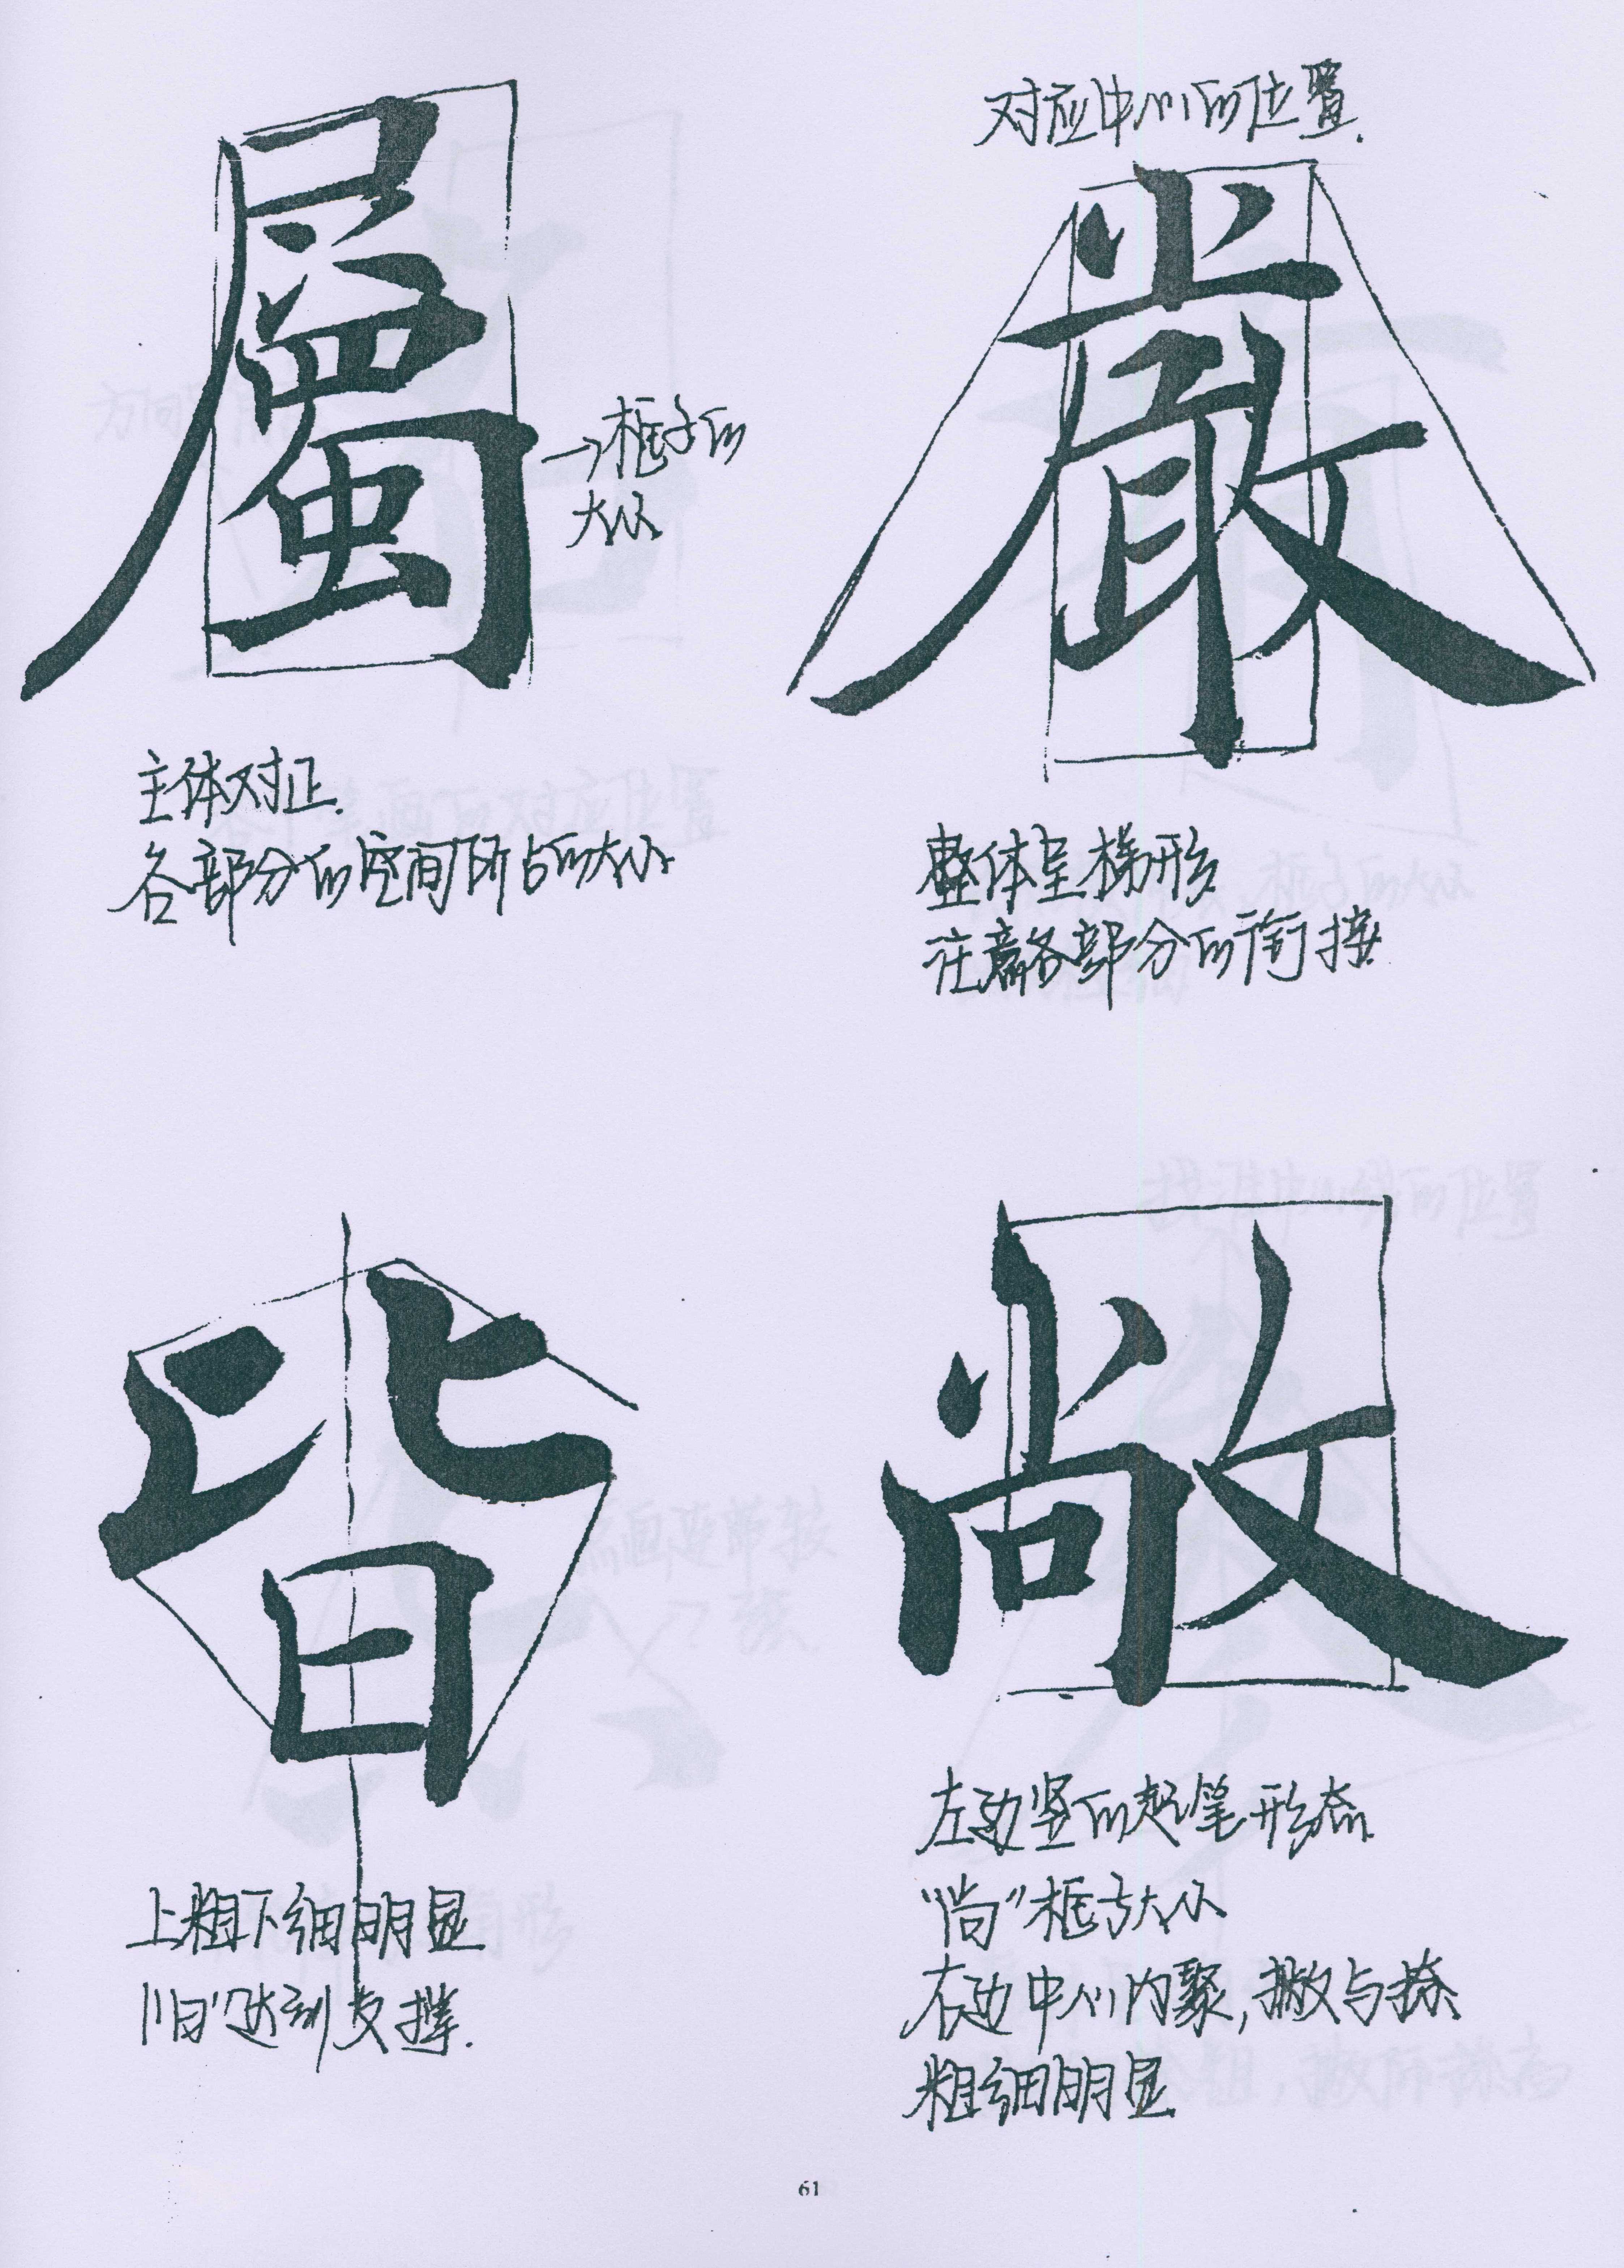 屬
→框子的
大小
主体对正.
各部分的空间所占的大小
对应中心的位置.
嚴
整体呈梯形
注意各部分的衔接
皆
上粗下细明显
"曰"达到支撑.
敞
左边竖的起笔形态
"尚"框子大小
右边中心内聚,撇与捺
粗细明显
61